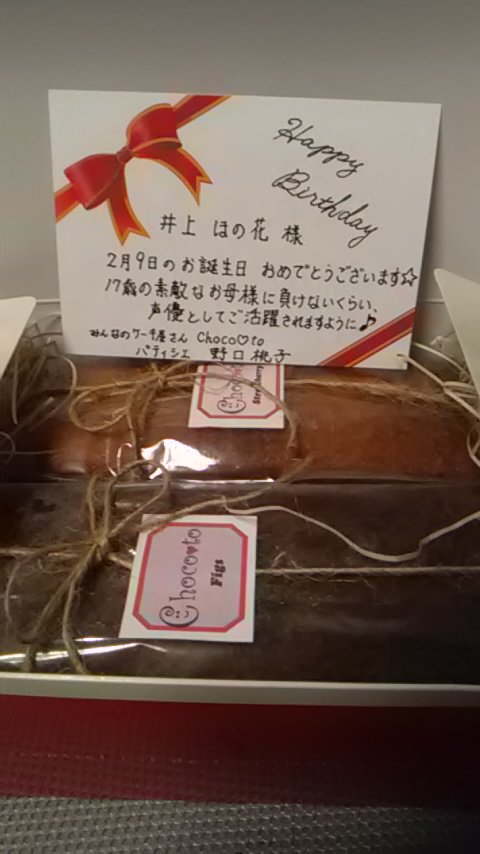 Happy
Birthday
井上 ほの花 様
2月9日のお誕生日 おめでとうございます☆
17歳の素敵なお母様に負けないくらい、
声優としてご活躍されますように♪
みんなのケーキ屋さん Choco♡to
パティシエ 野口桃子
Choco
Strawberry
Choco♥to
Figs